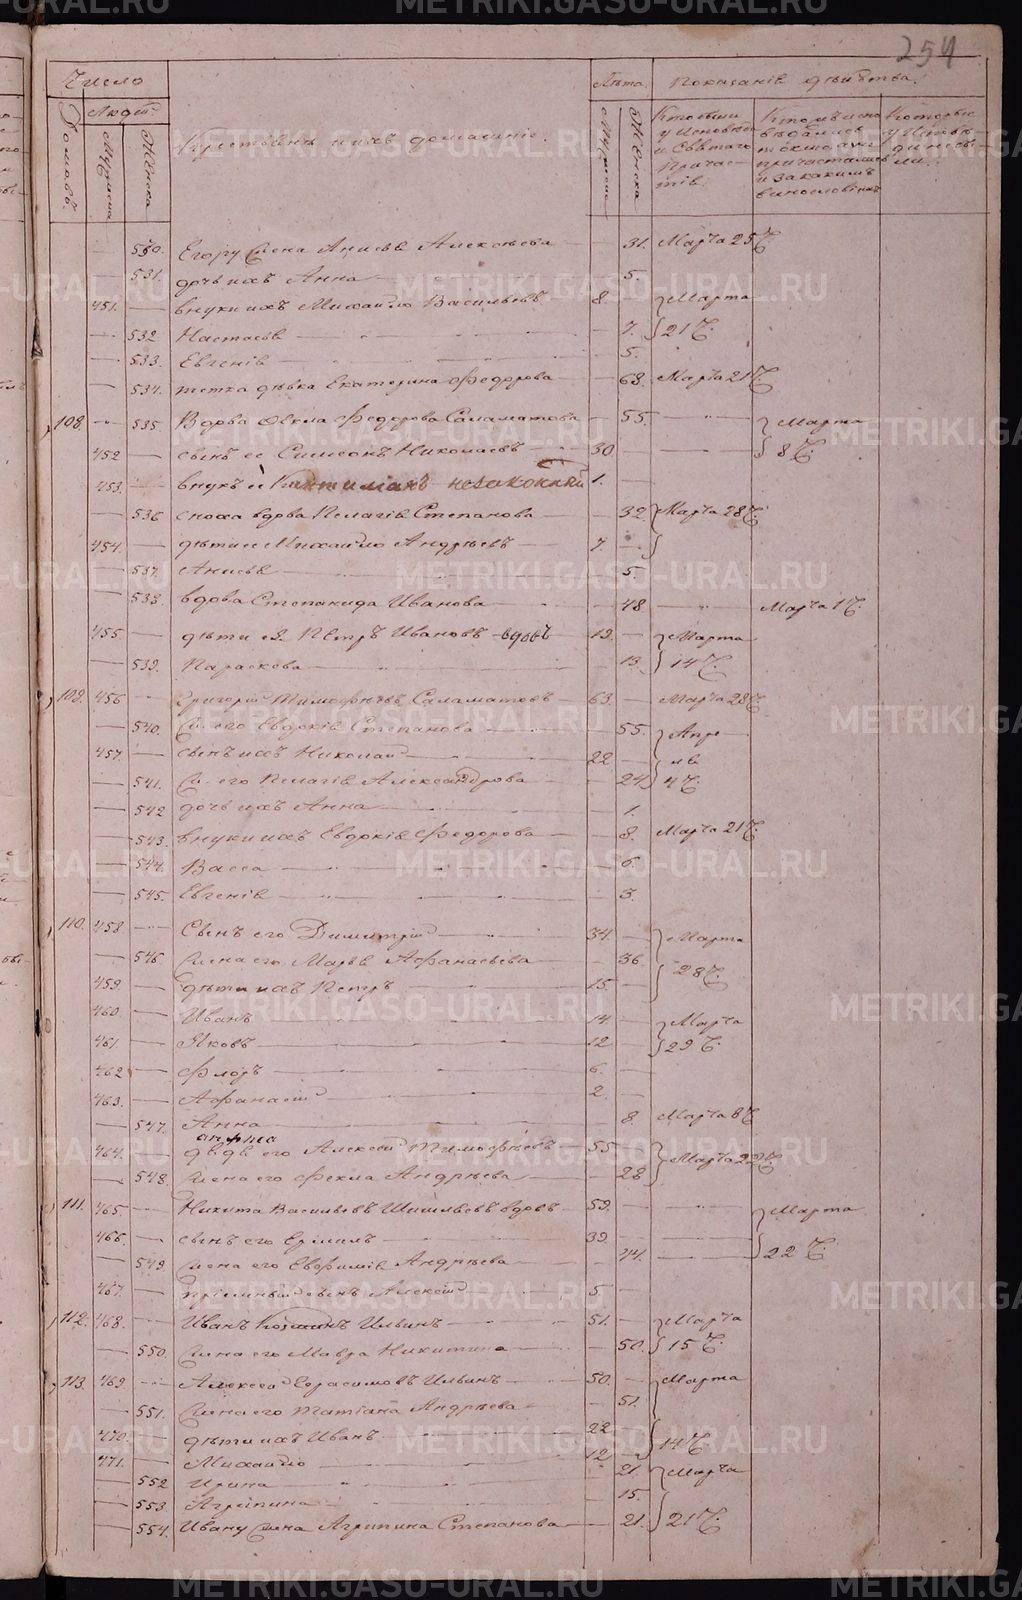 254
Число
Домовъ.
Людей.
Мужеска
Женска
Крестьяне и ихъ домашніе.
Лѣта
Мужеска
Женска
Показаніе дѣйства.
Кто были у Исповѣди и Святаго Причастія.
Кто исповѣдались
причастились
и за какимъ винословіемъ
Которые у Исповѣди не были.
530. Егору жена Анисья Алексѣева 31. Марта 25 Ч.
531. дочь ихъ Анна 5.
451. внуки ихъ Михайло Васильевъ 8 Марта
532 Настасья 7. 21 Ч.
533. Евгенія 5.
534. тетка дѣвка Екатерина Федорова 63. Марта 21 Ч.
108. 535 Вдова Ѳекла Федорова Саламатова 55. Марта
452 сынъ ее Симеонъ Николаевъ 30 8 Ч.
453. внукъ ее незаконный 1.
536 сноха вдова Пелагія Степанова 32 Марта 28 Ч.
454 дѣти ее Михайло Андрѣевъ 7.
537. Анисья 5.
538. вдова Степанида Иванова 48 Марта 1 Ч.
455 дѣти ея Петръ Ивановъ вдовъ 19. Марта
539. Параскова 13. 14 Ч.
109. 456 Григорій Тимофѣевъ Саламатовъ 63. Марта 28 Ч.
540. Ж. его Евдокія Степанова 55. Апре
457. сынъ ихъ Николай 22 ля
541. Ж. его Пелагія Александрова 24 4 Ч.
542 дочь ихъ Анна 1.
543. внуки ихъ Евдокія Федорова 8. Марта 21 Ч.
544. Васса 6.
545. Евгенія 3.
110. 458 Сынъ его Димитрій 34. Марта
546. жена его Марья Афанасьева 36 28 Ч.
459 дѣти ихъ Петръ 15.
460. Иванъ 14. Марта
461 Яковъ 12 29 Ч.
462 Флоръ 6.
463. Афанасій 2.
547. Анна 8. Марта 8 Ч.
464. дядя его Алексѣй Тимофѣевъ 55
548. жена его Фекла Андрѣева 28 Марта 22 Ч.
111. 465. Никита Васильевъ Шишлевъ вдовъ 59. Марта
466. сынъ его Ермилъ 39. 22 Ч.
549. жена его Евфимія Андрѣева 44.
467. пріемный сынъ Алексѣй 5.
112. 468. Иванъ Ильинъ 51. Марта
550. жена его Мавра Никитина 50. 15 Ч.
113. 469. Алексѣй Герасимовъ Ильинъ 50. Марта
551. Жена его Татіана Андрѣева 51.
470. дѣти ихъ Иванъ 22 14 Ч.
471. Михайло 12
552 Ирина 21 Марта
553. Агрипина 15.
554. Ивану жена Агрипина Степанова 21. 21 Ч.
METRIKI.GASO-URAL.RU